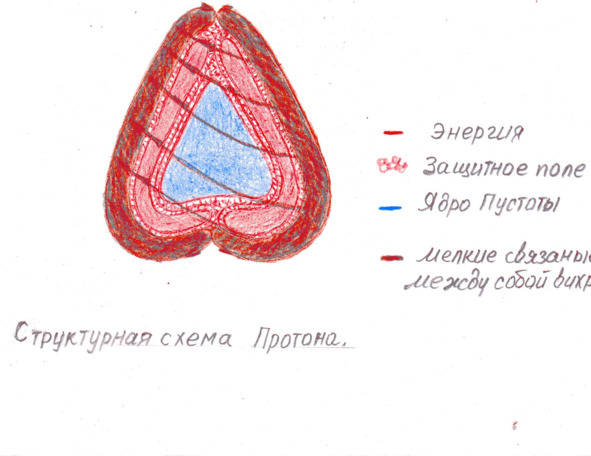 Энергия
Защитное поле
Ядро Пустоты
мелкие связаны
между собой вихр
Структурная схема Протона.